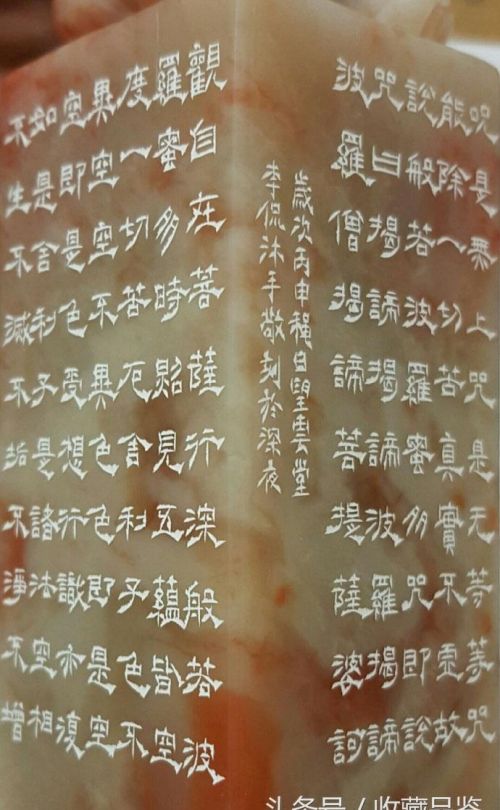 觀自在菩薩行深般若波
羅蜜多時照見五蘊皆空
度一切苦厄舍利子色不
異空空不異色色即是空
空即是色受想行識亦復
如是舍利子是諸法空相
不生不滅不垢不淨不增
咒是無上咒是无等等咒
能除一切苦真實不虛故
說般若波羅蜜多咒即說
咒曰揭諦揭諦波羅揭諦
波羅僧揭諦菩提薩婆訶
歲次丙申穐日望雲堂
李侃沐手敬刻於深夜
头条号 / 收藏品鉴